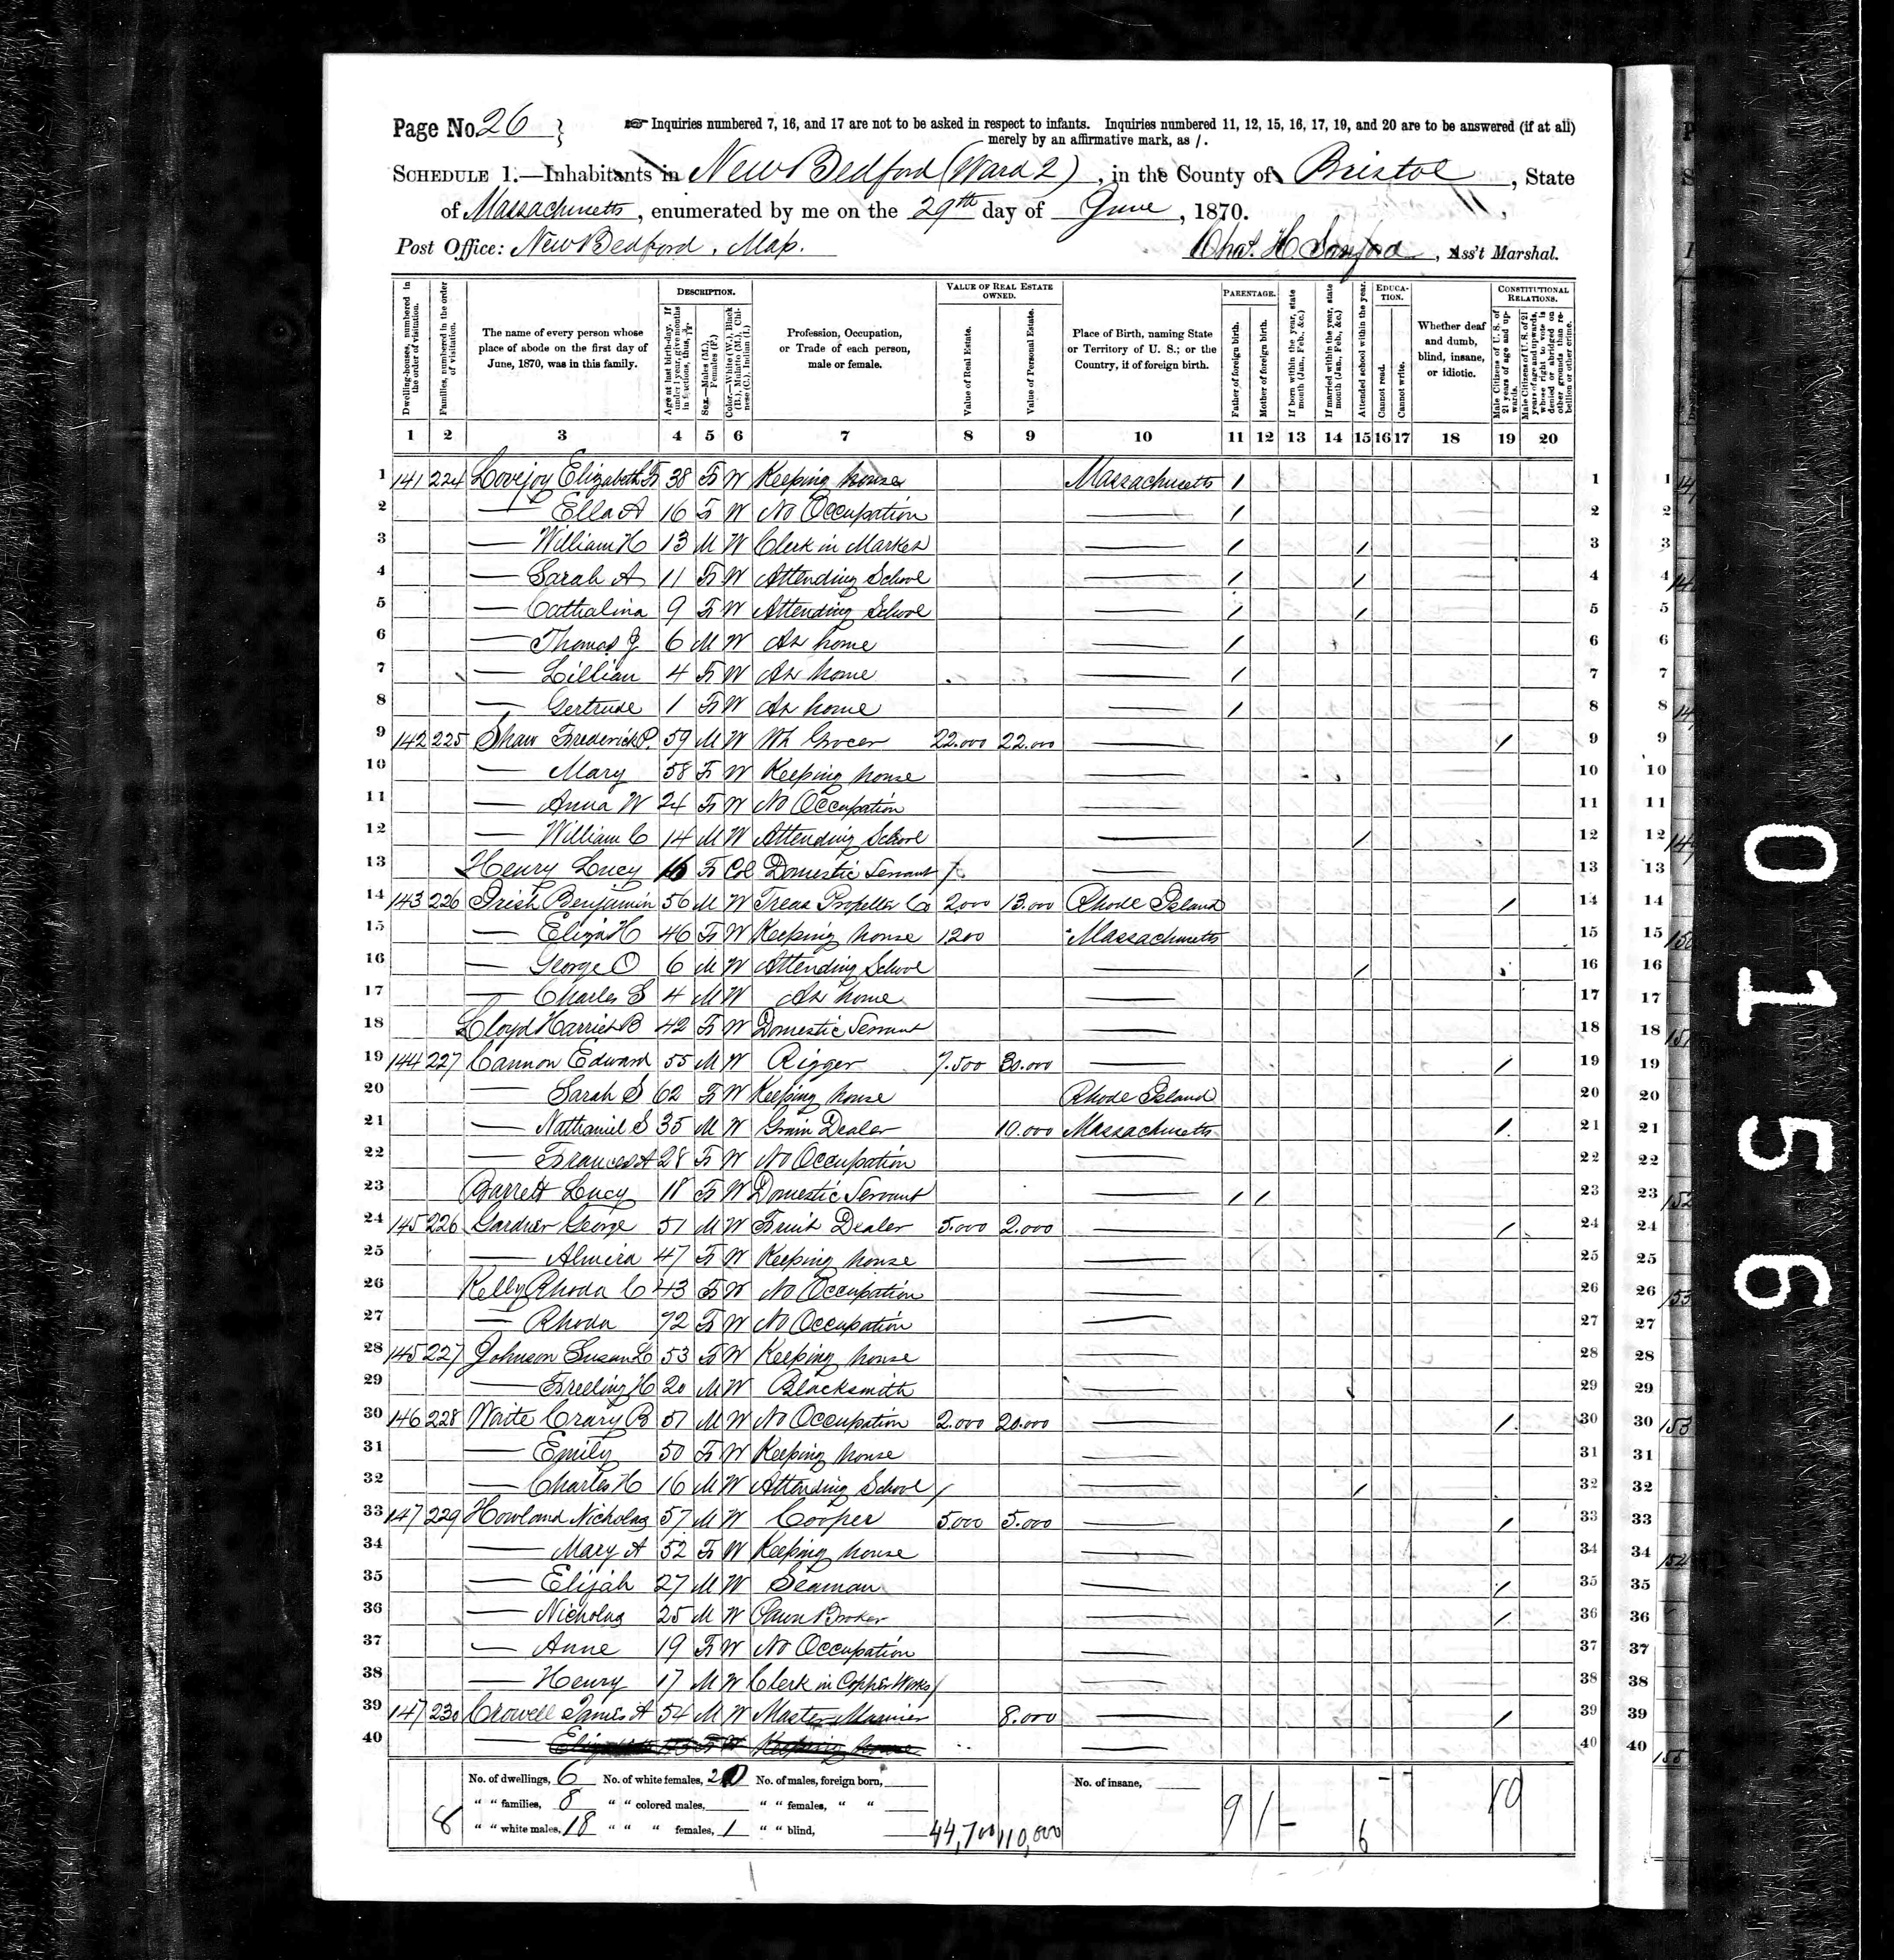 Page No. 26
Inquiries numbered 7, 16, and 17 are not to be asked in respect to infants. Inquiries numbered 11, 12, 15, 16, 17, 19, and 20 are to be answered (if at all)
merely by an affirmative mark, as /.
SCHEDULE 1.—Inhabitants in New Bedford (Ward 2), in the County of Bristol, State
of Massachusetts, enumerated by me on the 29th day of June, 1870.
Post Office: New Bedford, Mas. Chas. H. Sanford, Ass't Marshal.
Dwelling-houses, numbered in the order of visitation.
Families, numbered in the order of visitation.
The name of every person whose place of abode on the first day of June, 1870, was in this family.
DESCRIPTION.
Age at last birth-day. If under 1 year, give months in fractions, thus,
Sex.—Males (M.), Females (F.)
Color.—White (W.), Black (B.), Mulatto (M.), Chinese (C.), Indian (I.)
Profession, Occupation, or Trade of each person, male or female.
VALUE OF REAL ESTATE OWNED.
Value of Real Estate.
Value of Personal Estate.
Place of Birth, naming State or Territory of U. S.; or the Country, if of foreign birth.
PARENTAGE.
Father of foreign birth.
Mother of foreign birth.
If born within the year, state month (Jan., Feb., &c.)
If married within the year, state month (Jan., Feb., &c.)
Attended school within the year.
EDUCATION.
Cannot read.
Cannot write.
Whether deaf and dumb, blind, insane, or idiotic.
CONSTITUTIONAL RELATIONS.
Male Citizens of U. S. of 21 years of age and upwards.
Male Citizens of U. S. of 21 years of age and upwards, whose right to vote is denied or abridged on other grounds than rebellion or other crime.
1 2 3 4 5 6 7 8 9 10 11 12 13 14 15 16 17 18 19 20
1 141 224 Lovejoy Elizabeth F 38 F W Keeping house Massachusetts / 1
2 — Ella A 16 F W No Occupation — / 2
3 — William H 13 M W Clerk in Market — / / 3
4 — Sarah A 11 F W Attending School — / / 4
5 — Cathalina 9 F W Attending School — / / 5
6 — Thomas J 6 M W At home — / 6
7 — Lillian 4 F W At home — / 7
8 — Gertrude 1 F W At home — / 8
9 142 225 Shaw Frederick P. 59 M W Wh Grocer 22.000 22.000 — / 9
10 — Mary 58 F W Keeping house — 10
11 — Anna W 24 F W No Occupation — 11
12 — William C 14 M W Attending School — / 12
13 Henry Lucy 16 F Col Domestic Servant — 13
14 143 226 Irish Benjamin 56 M W Treas Propeller Co 2.000 13.000 Rhode Island / 14
15 — Eliza H 46 F W Keeping house 1200 Massachusetts 15
16 — George O 6 M W Attending School — / 16
17 — Charles S 4 M W At home — 17
18 Lloyd Harriet B 42 F W Domestic Servant — 18
19 144 227 Cannon Edward 55 M W Rigger 7.500 30.000 — / 19
20 — Sarah S 62 F W Keeping house Rhode Island 20
21 — Nathaniel S 35 M W Grain Dealer 10.000 Massachusetts / 21
22 — Frances A 28 F W No Occupation — 22
23 Barrett Lucy 18 F W Domestic Servant — / / 23
24 145 226 Gardner George 51 M W Fruit Dealer 5.000 2.000 — / 24
25 — Almira 47 F W Keeping house — 25
26 Kelly Rhoda C 43 F W No Occupation — 26
27 — Rhoda 72 F W No Occupation — 27
28 145 227 Johnson Susan L 53 F W Keeping house — 28
29 — Freeling H 20 M W Blacksmith — 29
30 146 228 Waite Crary B 51 M W No Occupation 2.000 20.000 — / 30
31 — Emily 50 F W Keeping house — 31
32 — Charles H 16 M W Attending School — / 32
33 147 229 Howland Nicholas 57 M W Cooper 5000 5.000 — / 33
34 — Mary A 52 F W Keeping house — 34
35 — Elijah 27 M W Seaman — / 35
36 — Nicholas 25 M W Pawn Broker — / 36
37 — Anne 19 F W No Occupation — 37
38 — Henry 17 M W Clerk in Copper Works — 38
39 147 230 Crowell James A 54 M W Master Mariner 8.000 — / 39
40 — F W Keeping house — 40
No. of dwellings, 6 No. of white females, 20 No. of males, foreign born, No. of insane,
" " families, 8 " " colored males, " " females, " "
8 " " white males, 18 " " " females, 1 " " blind, 44,700 110,000 9 1 6 10
0156